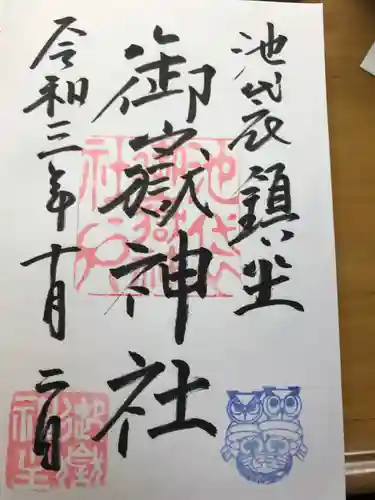 池袋鎮坐
御嶽神社
令和三年十月二日